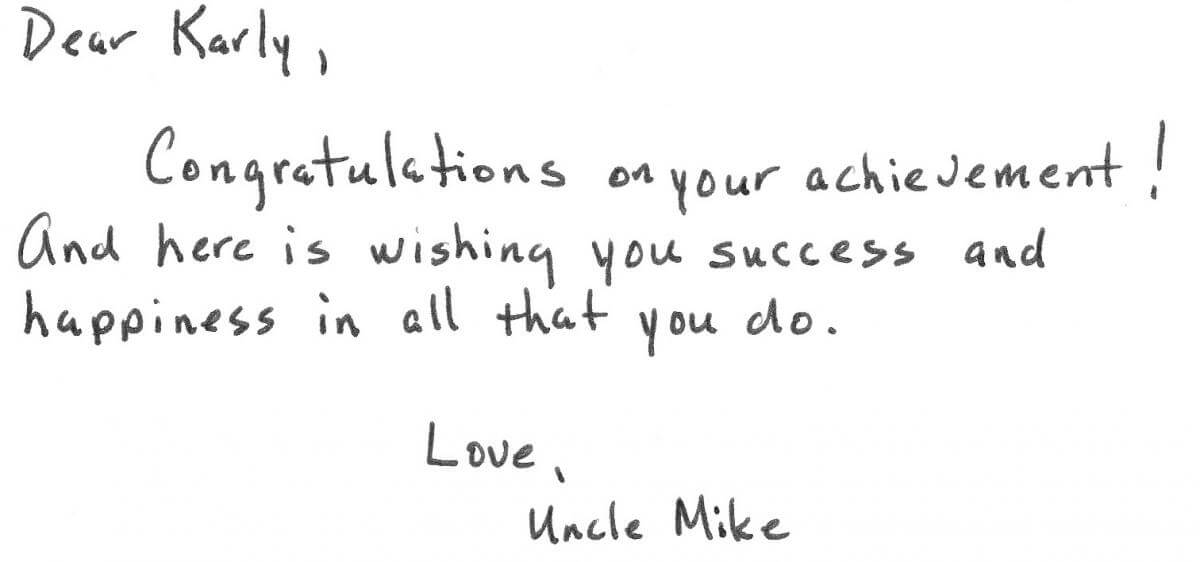 Dear Karly,
Congratulations on your achievement!
And here is wishing you success and
happiness in all that you do.
Love,
Uncle Mike